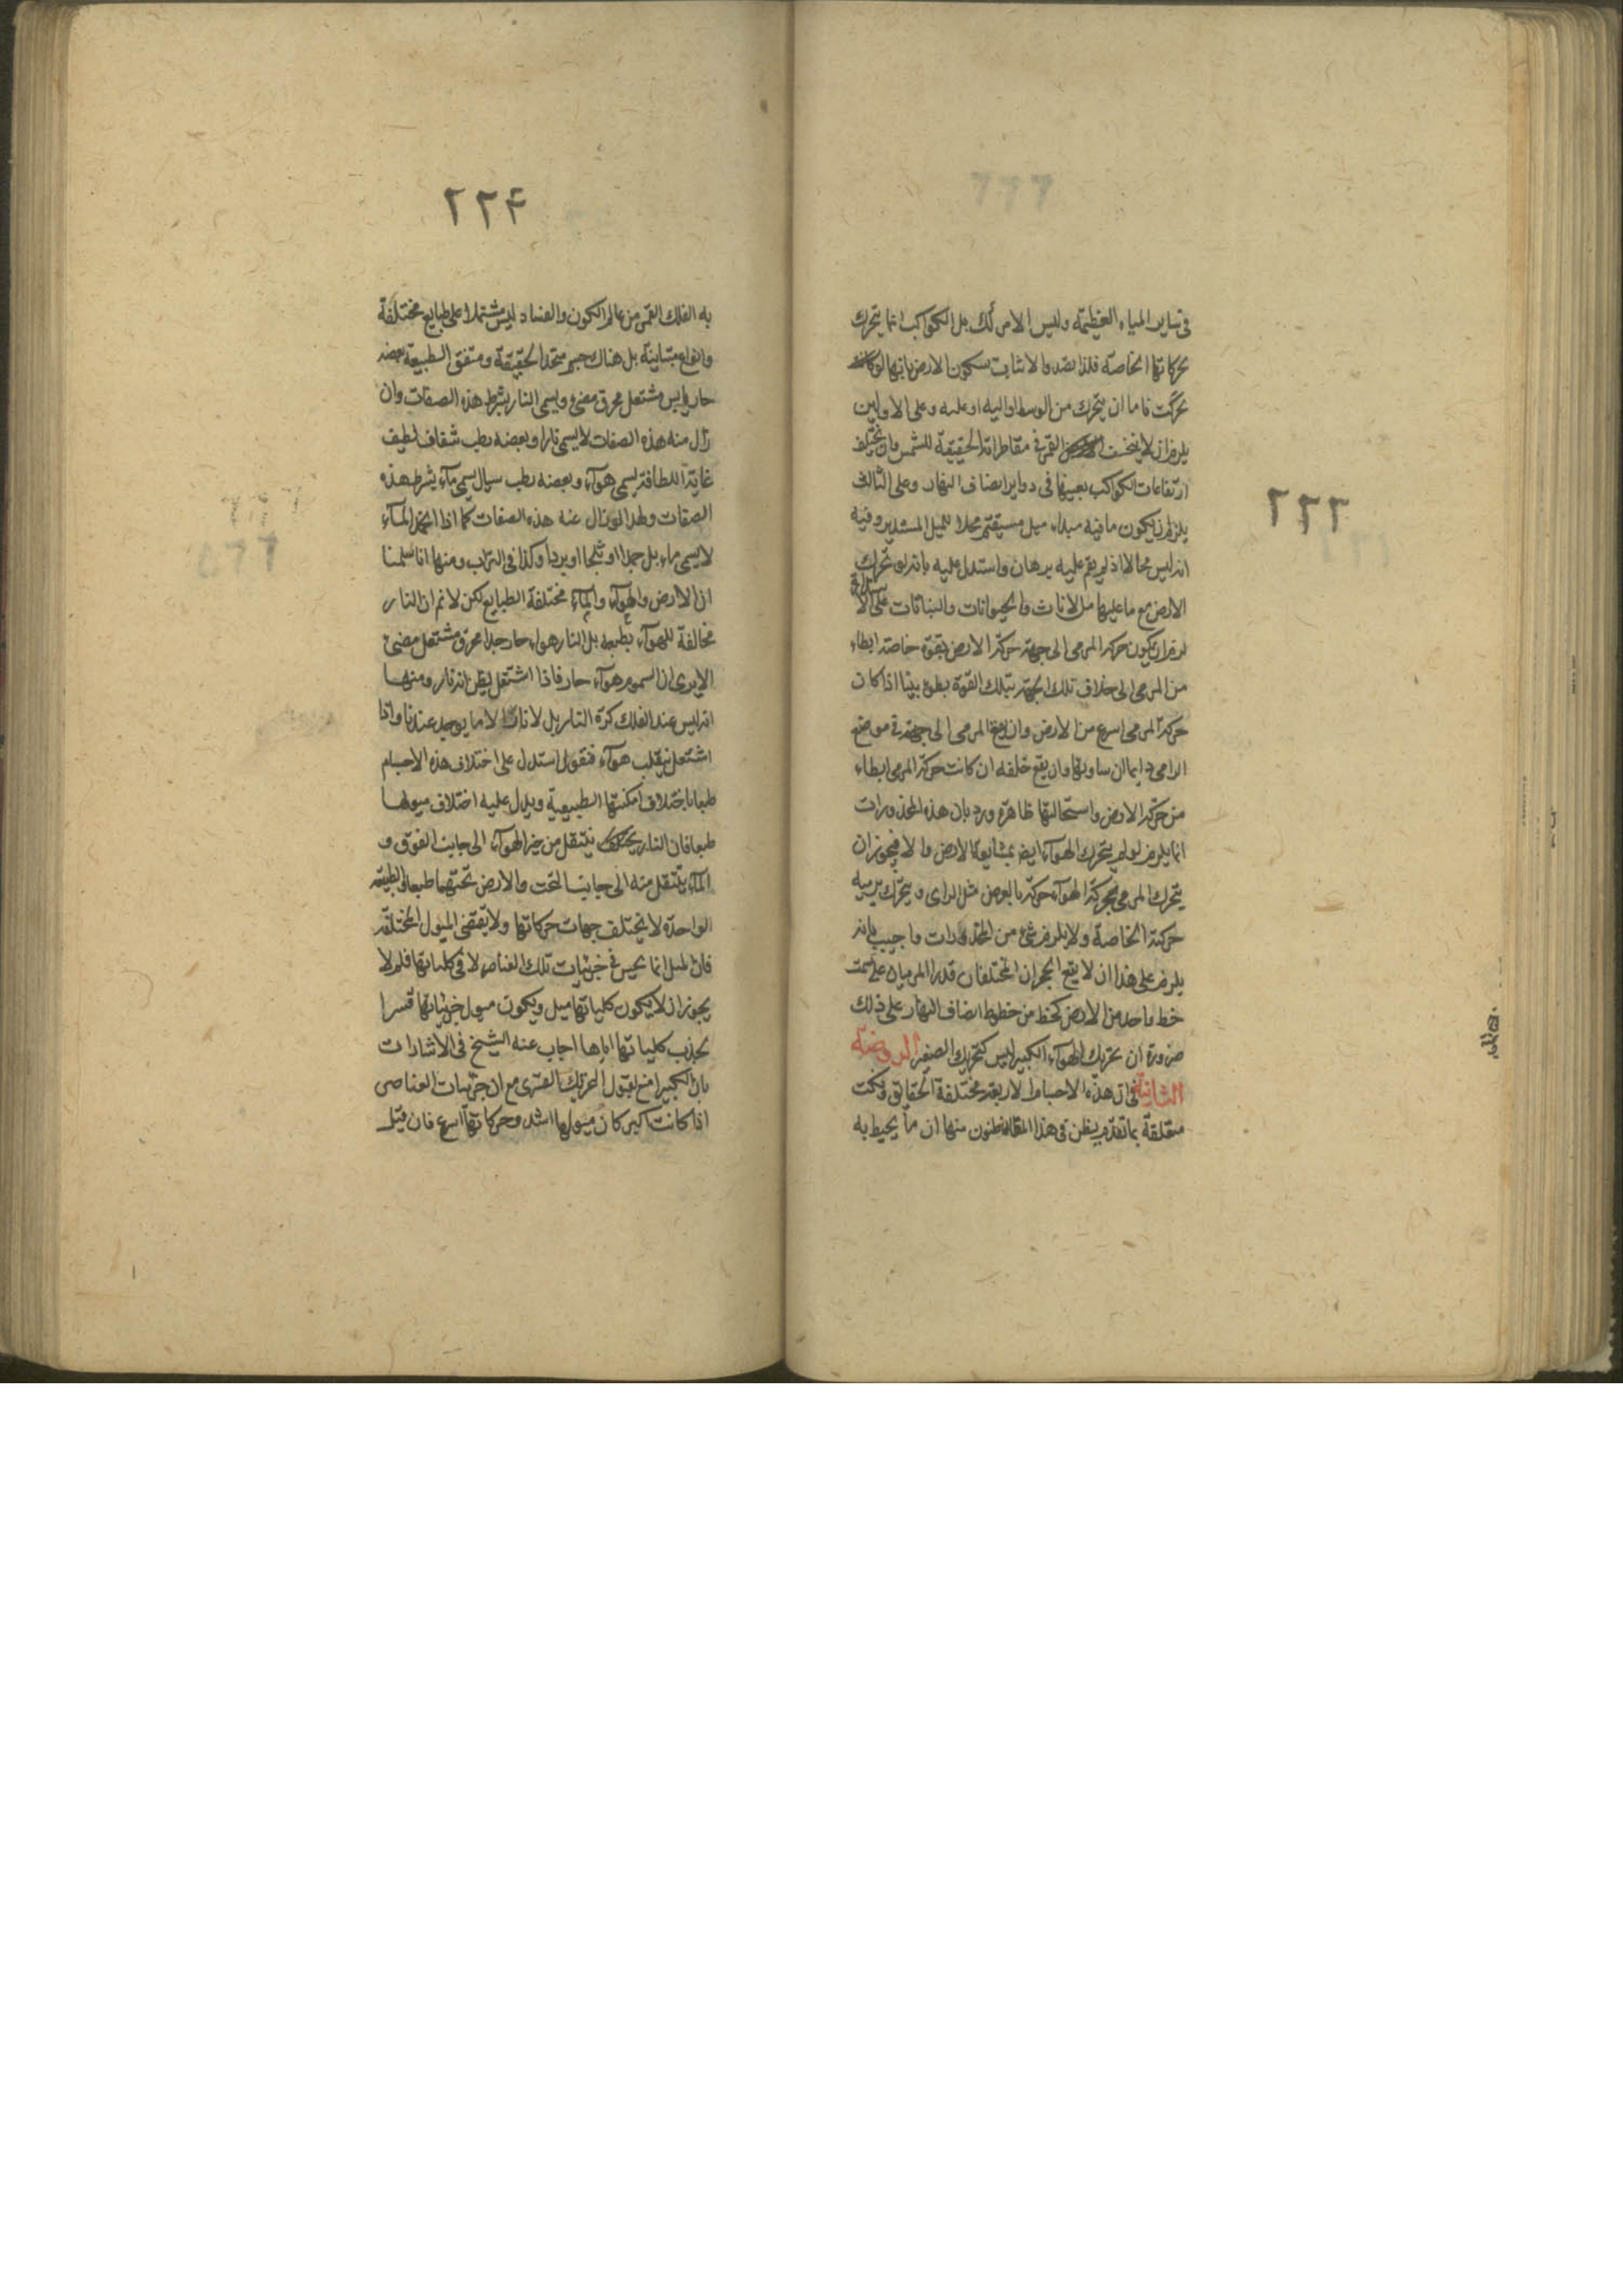 ٢٢٢
في ساير المياه العظيمة وليس الامر كك بل الكواكب انما يتحرك
بحركاتها الخاصة فلذا تصدوا لاثبات سكون الارض بانها لو كانت
تحركت فاما ان يتحرك من الوسط او اليه او عليه وعلى الاولين
يلزم ان لا ينخسف القمر في مقاطراته الحقيقية للشمس وان يختلف
ارتفاعات الكواكب بعينها في دواير انصاف النهار وعلى الثالث
يلزم ان يكون ما فيه مبداء ميل مستقيم محلا للميل المستدير وفيه
انه ليس محالا اذ لم يقم عليه برهان واستدل عليه بانه لو تحرك
الارض مع ما عليها من الاناث والحيوانات والنباتات على الا
لزم ان يكون حركة المرمى الى جهة حركة الارض بقوة خاصة ابطاء
من المرمى الى خلاف تلك الجهة بتلك القوة بطوء بينا اذا كان
حركة المرمى اسرع من الارض وان يقع المرمى الى جهة في موضع
الرامي دايما ان ساوتها وان يقع خلفه ان كانت حركة المرمى ابطاء
من حركة الارض واستحالتها ظاهرة ورد بان هذه المحذورات
انما يلزم لو لم يتحرك الهوآء ايض بمشايعة الارض والا فيجوز ان
يتحرك المرمى بحركة الهوآء حركة بالعرض مثل الراى ويتحرك يرميه
حركته الخاصة ولا يلزم شئ من المحذورات واجيب بانه
يلزم على هذا ان لا يقع الحجران المختلفان قدرا المرميان على سمت
خط واحد من الارض كخط من خطوط انصاف النهار على ذلك
ضرورة ان تحريك الهوآء الكبير ليس كتحريك الصغير الروضة
الثانية في ان هذه الاجسام الاربعة مختلفة الحقايق ونكت
متعلقة بما تقدم يظن في هذا المقام ظنون منها ان ما يحيط به
٢٢٤
به الفلك القمر من عالم الكون والفساد ليس مشتملا على طبايع مختلفة
وانواع متباينة بل هناك جسم متحد الحقيقة ومتفق الطبيعة بعضه
حار يابس مشتعل محرق مضئ ويسمى النار بشرط هذه الصفات وان
زال منه هذه الصفات لا يسمى نارا وبعضه رطب شفاف لطيف
غاية اللطافة يسمى هوآء وبعضه رطب سيال يسمى مآء بشرط هذه
الصفات ولهذا لو زال عنه هذه الصفات كما اذا انجمد المآء
لا يسمى ماء بل جمدا او ثلجا او بردا وكذا في التراب ومنها انا سلمنا
ان الارض والهوآء والمآء مختلفة الطبايع لكن لا نم ان النار
مخالفة للهوآء بطبعه بل النار هواء حار جدا محرق مشتعل مضئ
الا يرى ان السموم هوآء حار فاذا اشتعل يظن انه نار ومنها
انه ليس عند الفلك كرة النار بل لا نار الا ما يوجد عندنا واذا
اشتعل ينقلب هوآء فنقول استدل على اختلاف هذه الاجسام
طبعا باختلاف امكنتها الطبيعية ويدل عليه اختلاف ميولها
طبعا فان النار ينتقل من حيز الهوآء الى جانب الفوق و
المآء ينتقل منه الى جانب التحت والارض تحتهما طبعا والطبيعة
الواحدة لا يختلف جهات حركاتها ولا يقتضى الميول المختلفة
فان قيل الميل انما يحس في جزئيات تلك العناصر لا في كلياتها فلم لا
يجوز ان لا يكون كلياتها ميل ويكون ميول جزئياتها قسرا
بجذب كلياتها اياها اجاب عنه الشيخ في الاشارات
بان الكبير امنع لقبول التحريك القسرى مع ان جزئيات العناصر
اذا كانت اكبر كان ميولها اشد وحركاتها اسرع فان قيل